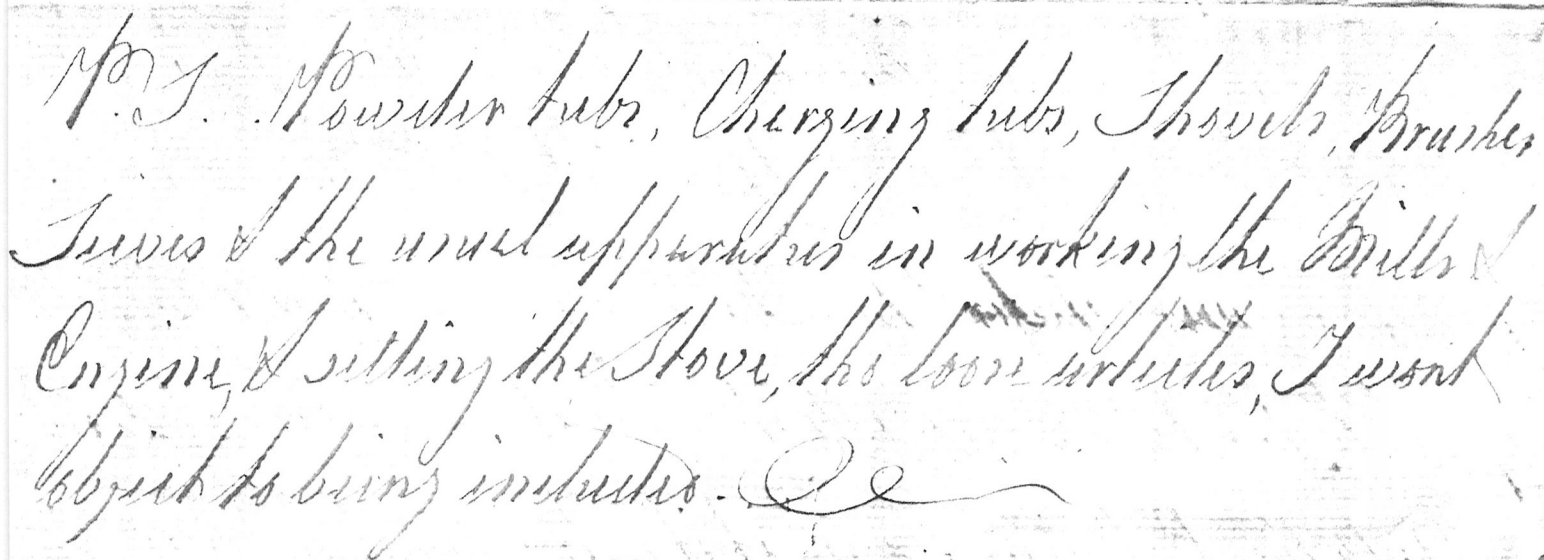 P.S. Powder tubs, Charging tubs, Shovels, Brushes
Sieves & the usual apparatus in working the Mills &
Engine, & setting the Stove, the loose articles, I wont
object to being included.